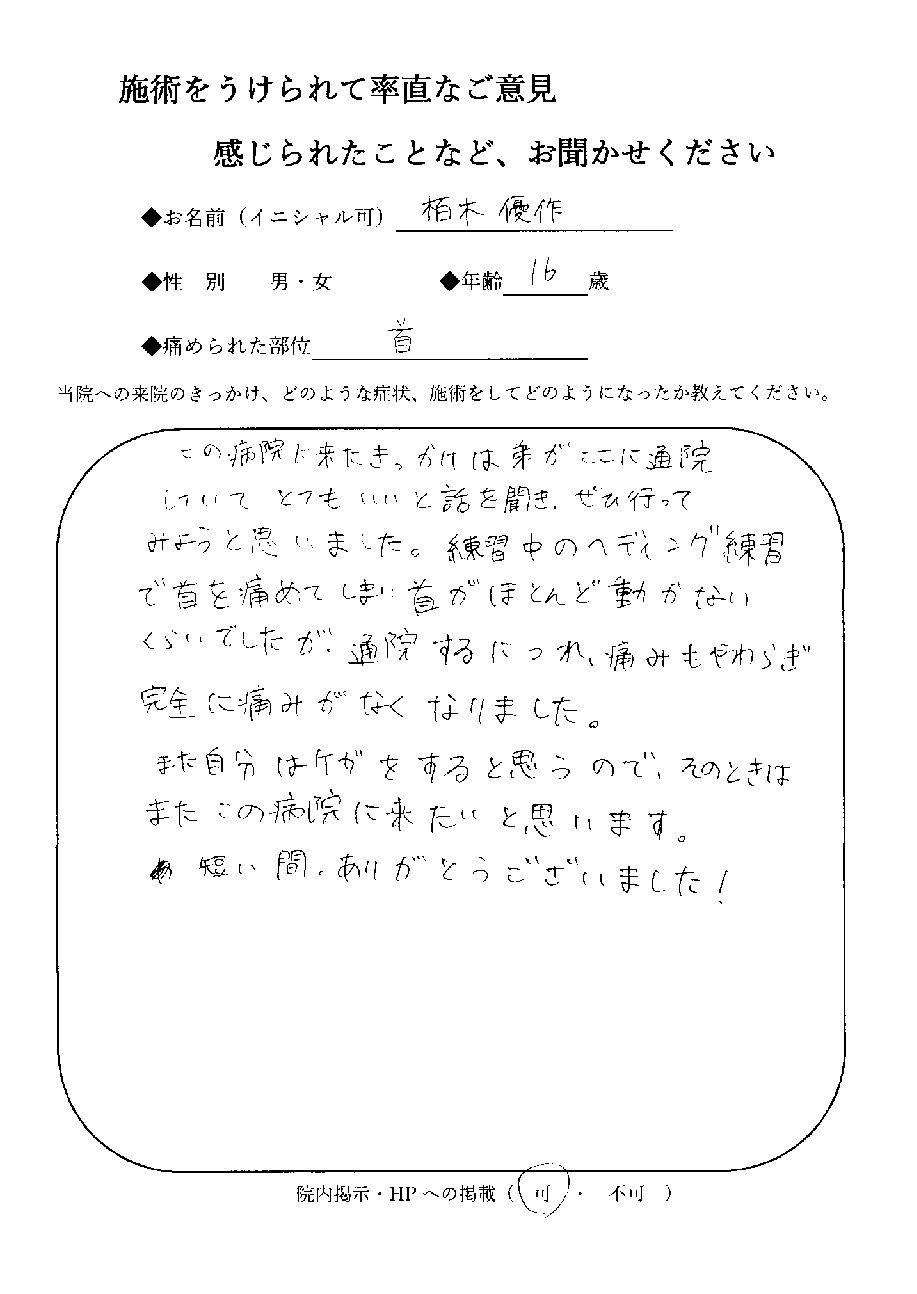 施術をうけられて率直なご意見
感じられたことなど、お聞かせください
◆お名前（イニシャル可） 栢木 優作
◆性　別　　男・女　　◆年齢 16 歳
◆痛められた部位 首
当院への来院のきっかけ、どのような症状、施術をしてどのようになったか教えてください。
この病院に来たきっかけは弟がここに通院
していて とてもいいと話を聞き、ぜひ行って
みようと思いました。練習中のヘディング練習
で首を痛めてしまい首がほとんど動かない
くらいでしたが、通院するにつれ、痛みもやわらぎ
完全に痛みがなくなりました。
また自分はケガをすると思うので、そのときは
またこの病院に来たいと思います。
短い間、ありがとうございました！
院内掲示・HPへの掲載（ 可 ・ 不可 ）